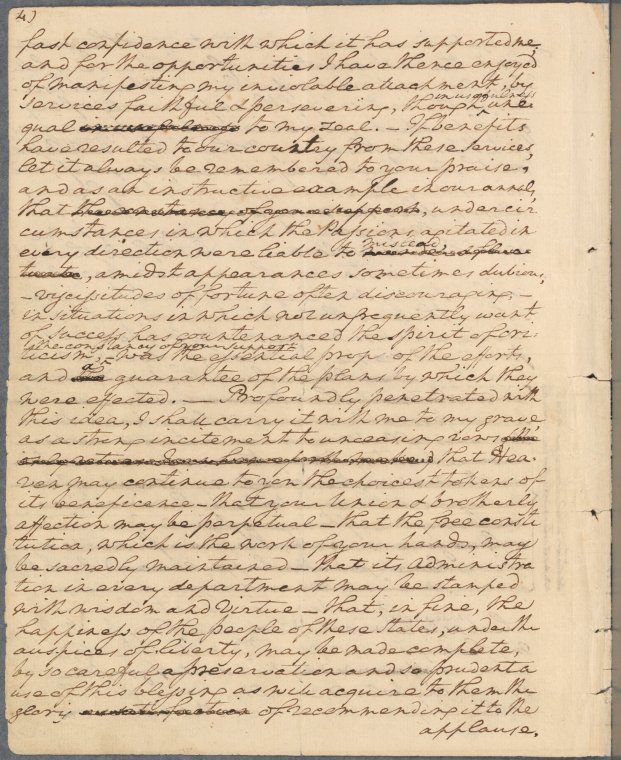 4)
fast confidence with which it has supported me,
and for the opportunities I have thence enjoyed
of manifesting my inviolable attachment, by
services faithful & persevering, though
in usefulness
une-
qual in usefulness to my zeal. — If benefits
have resulted to our country from these services,
let it always be remembered to your praise,
and as an instructive example in our annals,
that the constancy of your support, under cir
cumstances in which the Passions agitated in
every direction were liable to
mislead,
amidst appearances sometimes dubious,
— vicissitudes of fortune often discouraging, —
in situations in which not unfrequently want
of success has countenanced the spirit of cri
the constancy of your support
ticism, — was the essential prop of the efforts,
a
and the guarantee of the plans by which they
were effected. — Profoundly penetrated with
this idea, I shall carry it with me to my grave,
as a strong incitement to unceasing vows
that Hea-
ven may continue to you the choicest tokens of
its beneficence — that your Union & brotherly
affection may be perpetual — that the free consti
tution, which is the work of your hands, may
be sacredly maintained — that its administra
tion in every department may be stamped
with wisdom and virtue — that, in fine, the
happiness of the people of these States, under the
auspices of liberty, may be made complete,
by so careful a preservation and so prudent a
use of this blessing as will acquire to them the
glory or satisfaction of recommending it to the
applause,